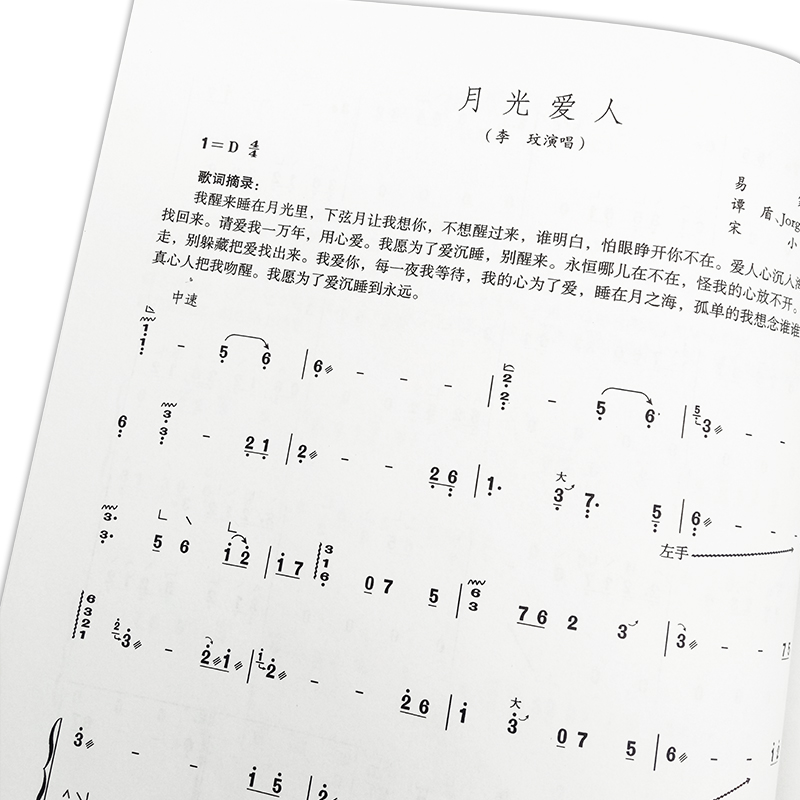 月光爱人
（李 玟演唱）
1=D 4/4
易
谭 盾、Jorg
宋 小
歌词摘录：
我醒来睡在月光里，下弦月让我想你，不想醒过来，谁明白，怕眼睁开你不在。爱人心沉入海
找回来。请爱我一万年，用心爱。我愿为了爱沉睡，别醒来。永恒哪儿在不在，怪我的心放不开。
走，别躲藏把爱找出来。我爱你，每一夜我等待，我的心为了爱，睡在月之海，孤单的我想念谁谁
真心人把我吻醒。我愿为了爱沉睡到永远。
中速
1 1 - 5 6 | 6 - - - | 2 2 - 5 6 | 5 3 - -
6 3 3 - 2 1 | 2 - - 2 6 | 1. 大 3 7. 5 | 6 - -
左手
3. 3. 5 6 1 2 | 1 7 3 1 6 0 7 5 | 6 3 7 6 2 3 | 3 - 1 5
6 3 2 1 2 3 - 2 1 | 1 2 - - 2 6 | 1 大 3 0 7 5 | 6 - - 1 2
3 - - 1 5 | 2